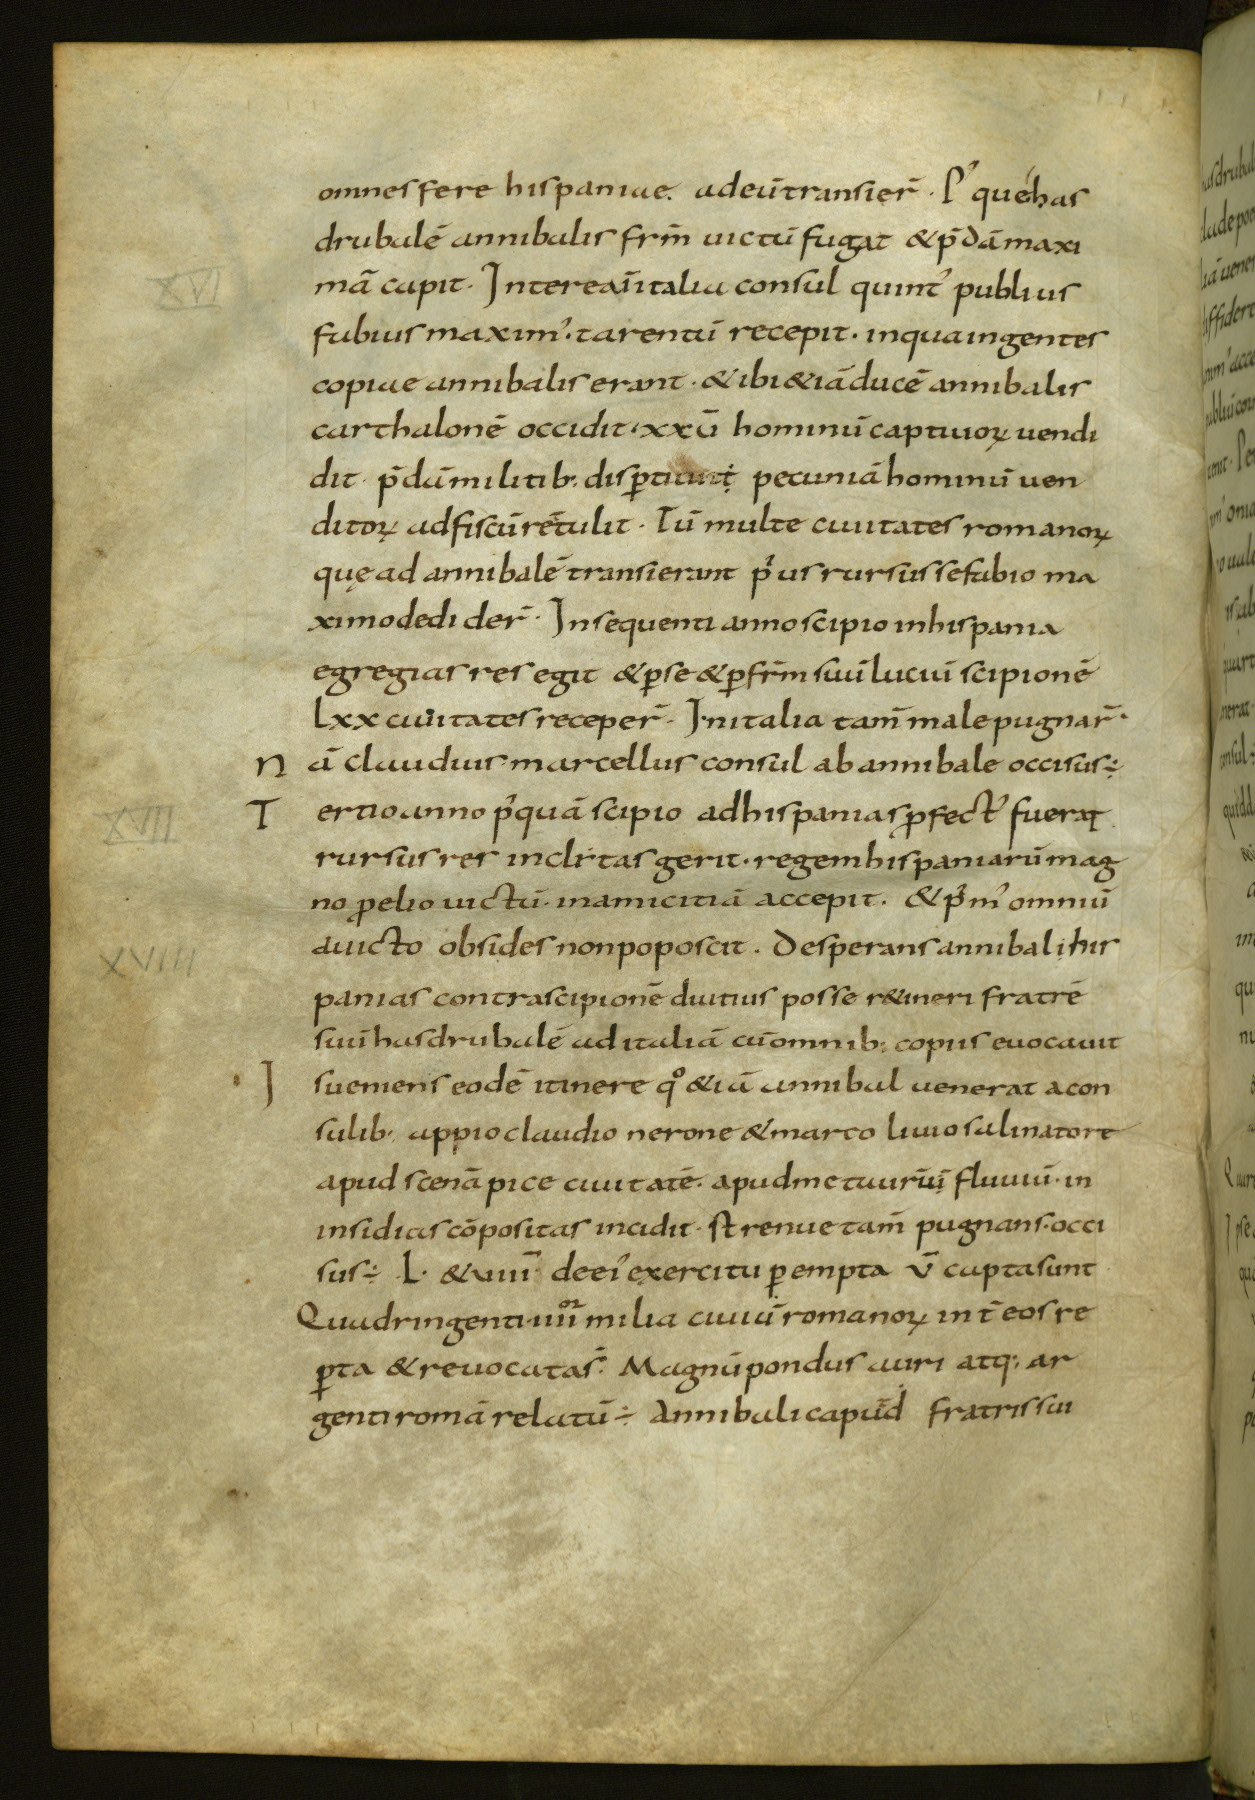 omnes fere hispaniae. ad eū transier̄. P' quē has
drubalē annibalis frm̄ uictū fugat & p̄dā maxi
mā capit. Interea ī italia consul quint' publius
fabius maxim'. tarentū recepit. in qua ingentes
copiae annibalis erant. & ibi & iā ducē annibalis
carthalonē occidit. xxv̄ hominū captiuoꝝ uendi
dit p̄dā militib;
pecuniā hominū uen
ditoꝝ ad fiscū retulit. Tū multe ciuitates romanoꝝ
quę ad annibalē transierant p'us rursus se fabio ma
ximo dedider̄. Insequenti anno scipio in hispania
egregias res egit & ꝑ se & ꝑ frm̄ suū luciū scipionē
Lxx ciuitates receper̄. In italia tam̄ male pugnar̄.
Nā claudius marcellus consul ab annibale occisus÷
Tertio anno p'quā scipio ad hispanias ꝓfect' fuerat
rursus res inclitas gerit. regem hispaniarū mag
no ꝓelio uictū. in amicitiā accepit. & p'm' omniū
a uicto obsides non poposcit. Desperans annibal his
panias contra scipionē diutius posse r&ineri fratrē
suū hasdrubalē ad italiā cū omnib; copiis euocauit
Is ueniens eodē itinere qͦ & iā annibal uenerat a con
sulib; appio claudio nerone & marco liuio salinatore
apud scenā pice ciuitatē. apud metaurū fluuiū. in
insidias cōpositas incidit. strenue tam̄ pugnans. occi
sus÷ L. & uiii de ei' exercitu ꝑempta v̄ capta sunt
Quadringenti. iiiior milia ciuiū romanoꝝ int̄ eos re
ꝑta & reuocata s̄. Magnū pondus auri atq; ar
genti romā relatū÷ Annibali capud fratris sui
XVI
XVIII
XVIIII